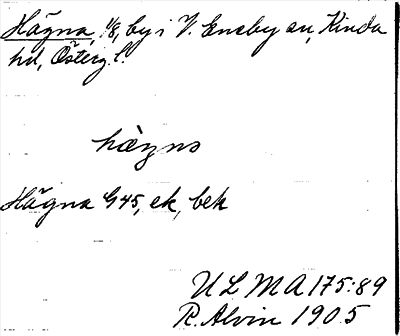 Hägna, 1/8, by i V. Eneby sn, Kinda
hd, Österg. l.
hægno
Hägna G 45, ek, bek
ULMA 175:89
R. Alvin 1905